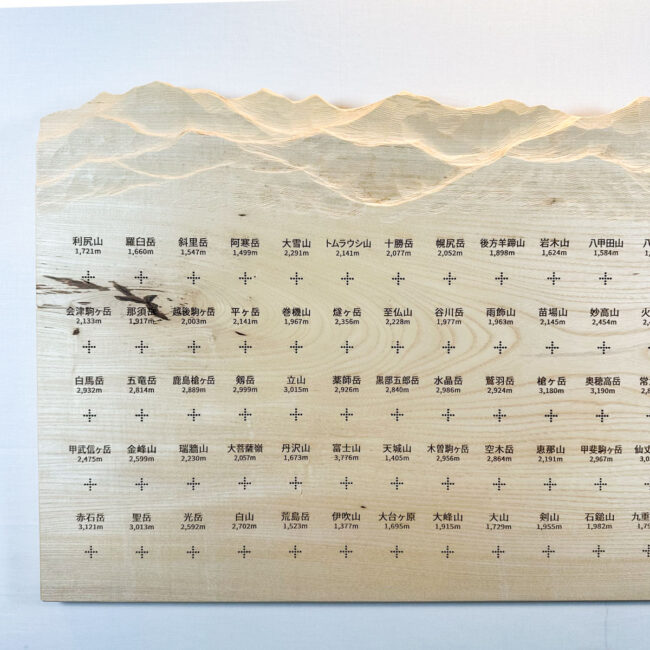 利尻山 羅臼岳 斜里岳 阿寒岳 大雪山 トムラウシ山 十勝岳 幌尻岳 後方羊蹄山 岩木山 八甲田山 八
1,721m 1,660m 1,547m 1,499m 2,291m 2,141m 2,077m 2,052m 1,898m 1,624m 1,584m
会津駒ヶ岳 那須岳 越後駒ヶ岳 平ヶ岳 巻機山 燧ヶ岳 至仏山 谷川岳 雨飾山 苗場山 妙高山 火
2,133m 1,917m 2,003m 2,141m 1,967m 2,356m 2,228m 1,977m 1,963m 2,145m 2,454m
白馬岳 五竜岳 鹿島槍ヶ岳 剱岳 立山 薬師岳 黒部五郎岳 水晶岳 鷲羽岳 槍ヶ岳 奥穂高岳 常
2,932m 2,814m 2,889m 2,999m 3,015m 2,926m 2,840m 2,986m 2,924m 3,180m 3,190m
甲武信ヶ岳 金峰山 瑞牆山 大菩薩嶺 丹沢山 富士山 天城山 木曽駒ヶ岳 空木岳 恵那山 甲斐駒ヶ岳 仙丈
2,475m 2,599m 2,230m 2,057m 1,673m 3,776m 1,405m 2,956m 2,864m 2,191m 2,967m
赤石岳 聖岳 光岳 白山 荒島岳 伊吹山 大台ヶ原 大峰山 大山 剣山 石鎚山 九重
3,121m 3,013m 2,592m 2,702m 1,523m 1,377m 1,695m 1,915m 1,729m 1,955m 1,982m